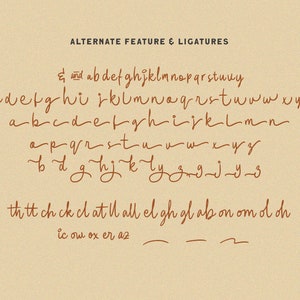 ALTERNATE FEATURE & LIGATURES
& and a b d e f g h j k l m n o p q r s t u v y
d e f g h i j k l m n o p q r s t u v w x y
a b c d e f g h i j k l m n
o p q r s t u v w x y z
b d g h j k l y y g j y g
th tt ch ck cl at ll all el gh gl ab on om ol oh
ic ow ox er az